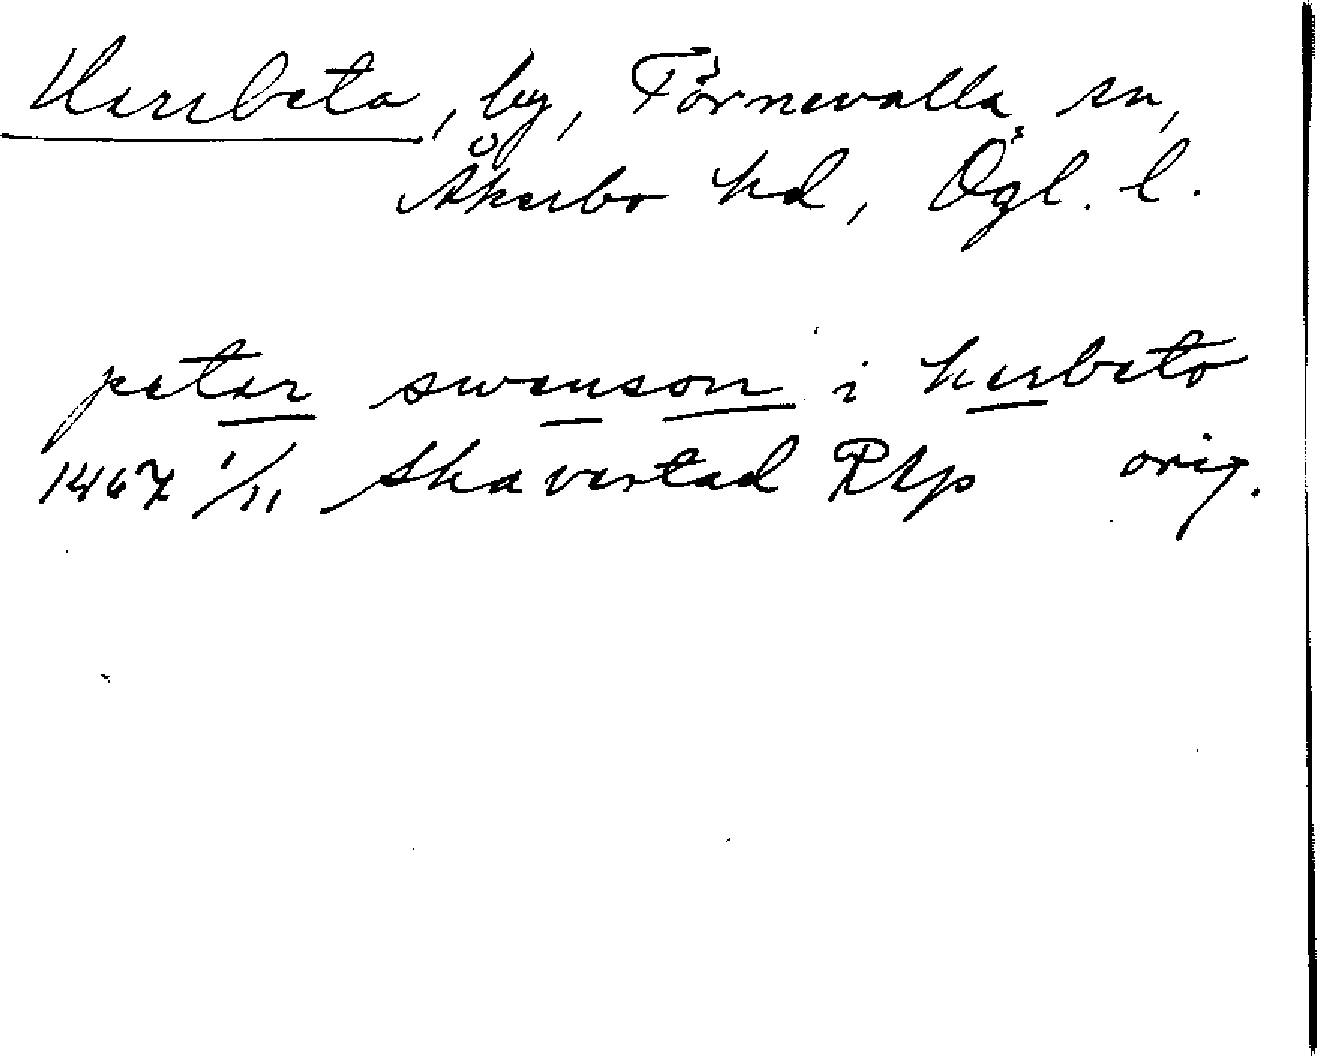 Herrbeta, by, Törnevalla sn,
Åkerbo hd, Ögl. l.
peter swenson i herbeto
1467 1/11 Skavestad RAp orig.